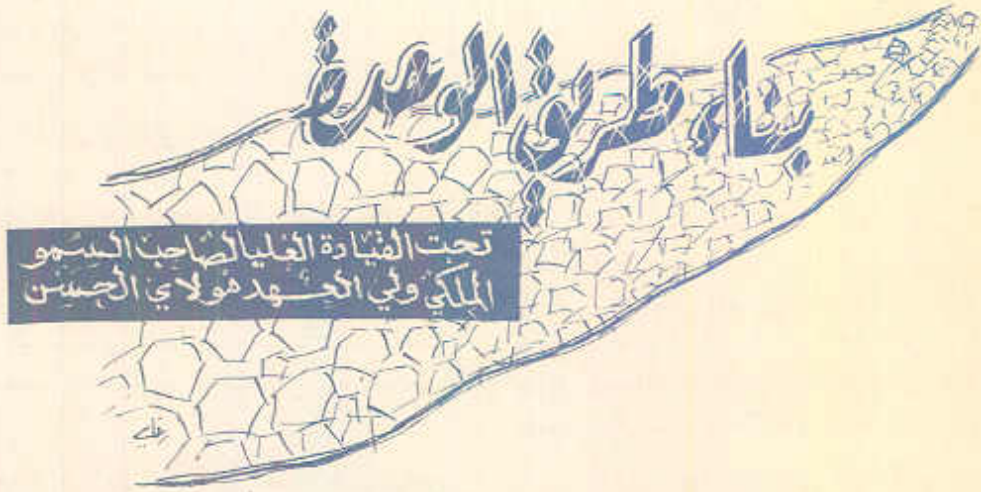 بناء طريق الوحدة
تحت القيادة العليا لصاحب السمو
الملكي ولي العهد مولاي الحسن